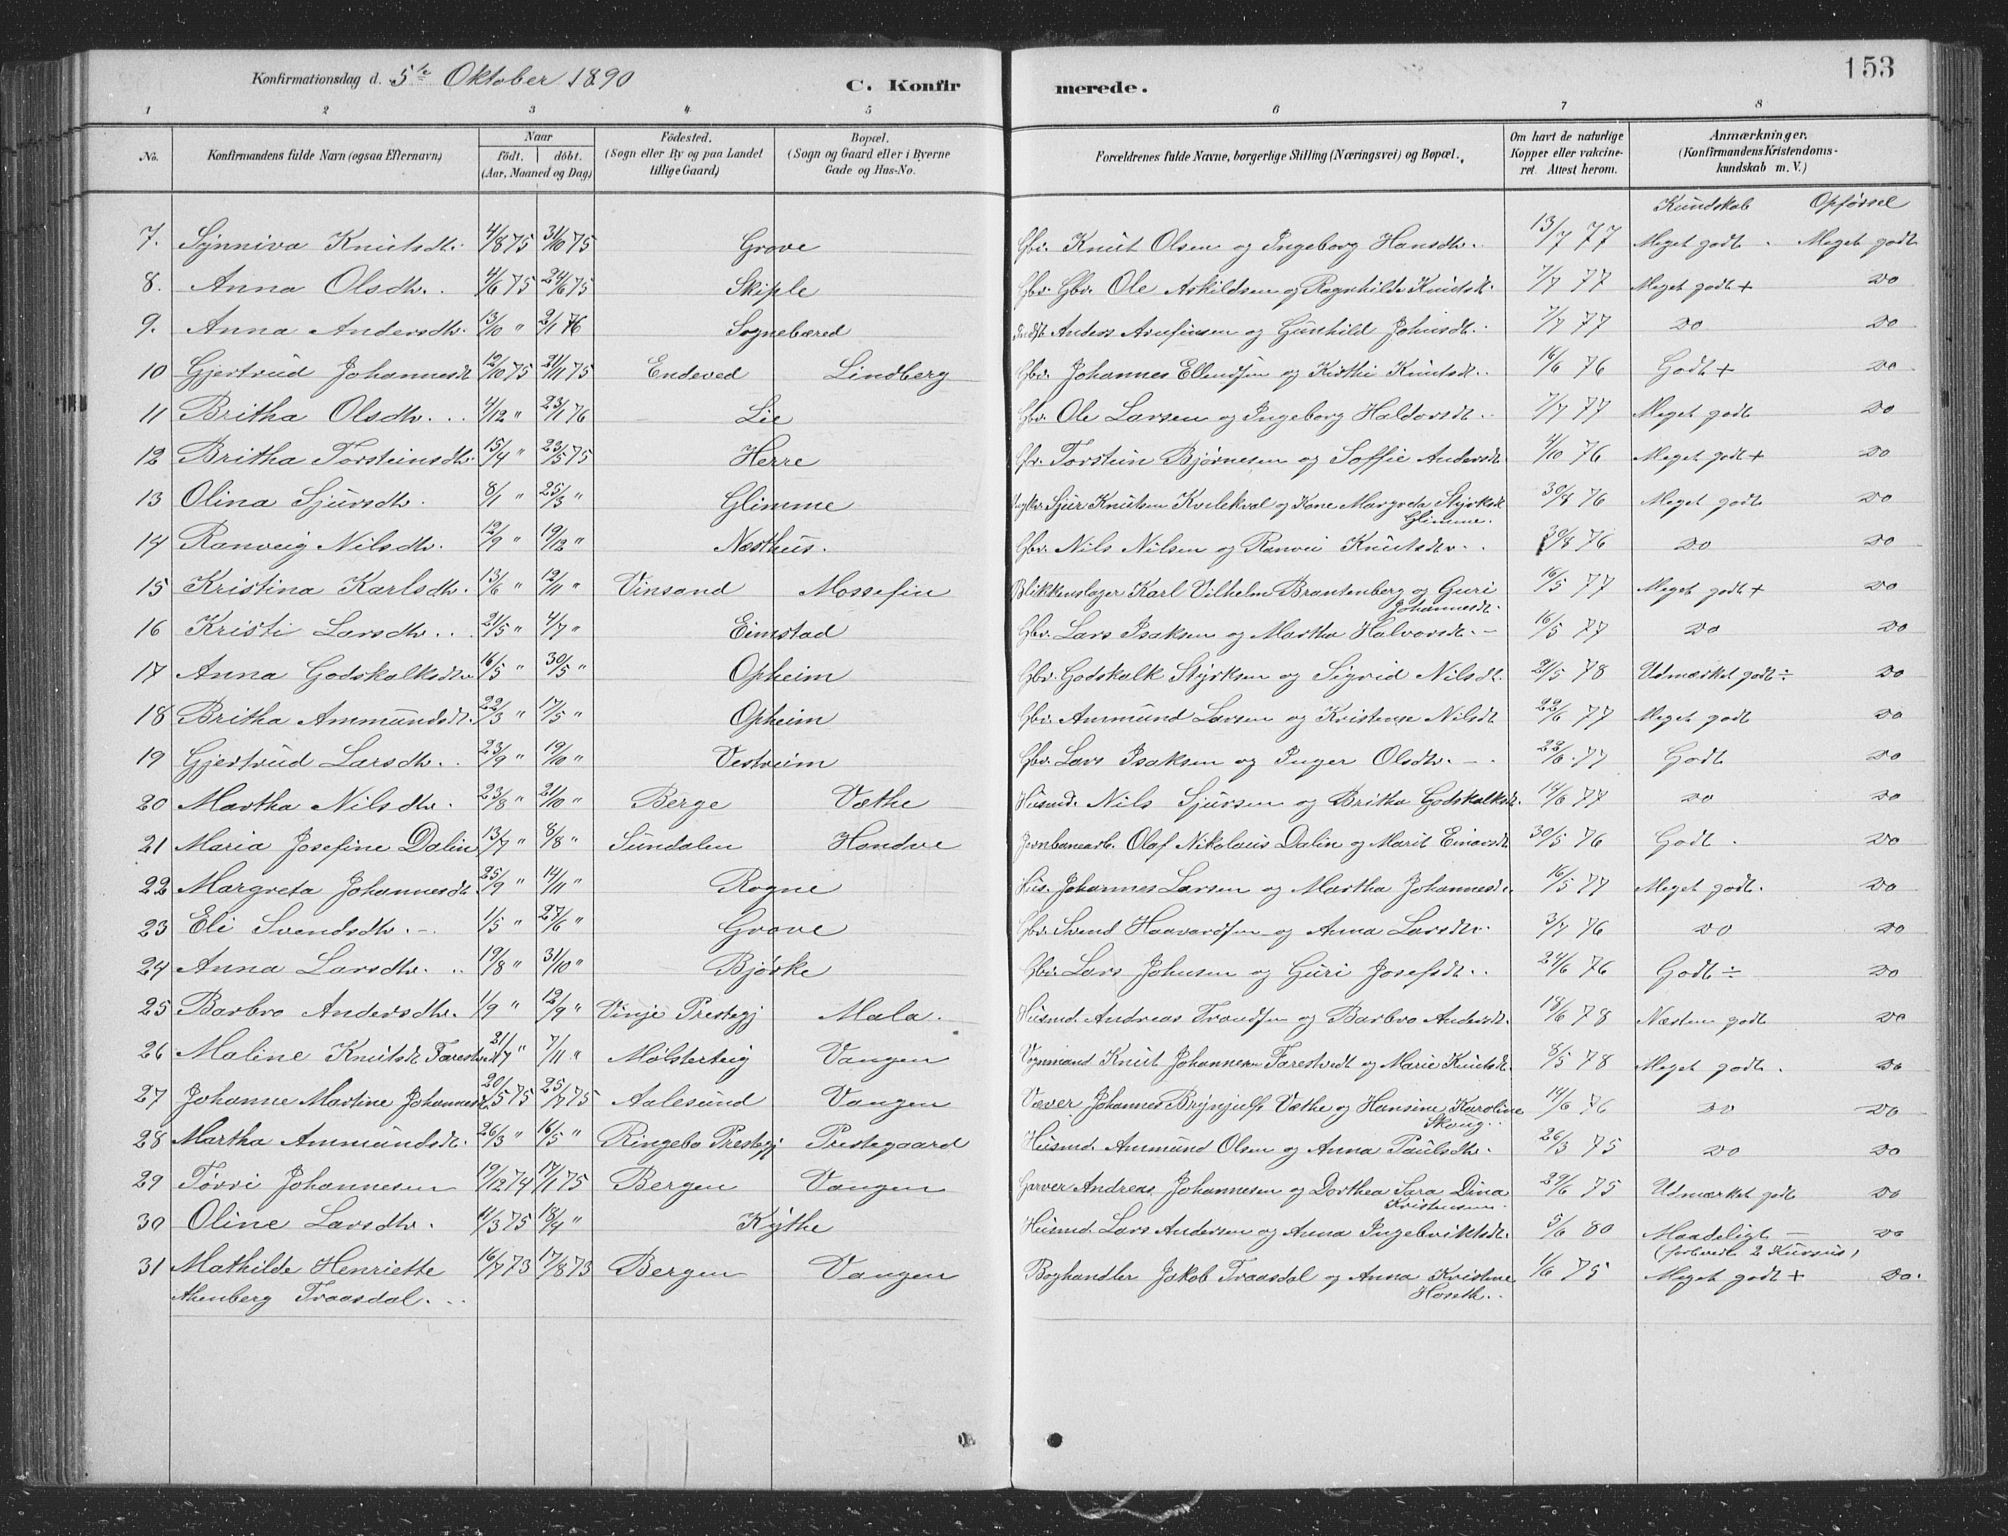 Konfirmationsdag d. 5te Oktober 1890 C. Konfir merede. 153
1 2 3 4 5 6 7 8
No. Konfirmandens fulde Navn (ogsaa Efternavn) Naar født. døbt. (Aar, Maaned og Dag) Fødested. (Sogn eller By og paa Landet tillige Gaard) Bopæl. (Sogn og Gaard eller i Byerne Gade og Hus-No. Forældrenes fulde Navne, borgerlige Stilling (Næringsvei) og Bopæl. Om havt de naturlige Kopper eller vakcineret. Attest herom. Anmærkninger. (Konfirmandens Kristendomskundskab m. V.)
Kundskab Opførsel
7. Synniva Knutsdtr. 4/8 75 31/10 75 Grove Gbr. Knut Olsen og Ingeborg Hansdtr. 13/7 77 Meget godt. Meget godt
8. Anna Olsdtr. 4/6 75 24/6 75 Skiple Gbr. Gbr. Ole Askildsen og Ragnhilde Knutsdt. 7/7 77 Meget godt + Do
9. Anna Andersdtr. 13/10 " 2/1 76 Sognebæred Anders Arnfinsen og Gunhild Johnsdt. 7/7 77 Do Do
10 Gjertrud Johannesdt 12/10 75 21/11 75 Endeved Lindberg Gbr. Johannes Ellendsen og Kirthi Knutsdt. 16/6 76 Godt + Do
11 Britha Olsdtr. 4/12 " 23/1 76 Lie Gbr. Ole Larsen og Ingeborg Haldorsdt. 7/7 77 Meget godt Do
12 Britha Torsteinsdtr. 15/4 " 23/5 75 Herre Gbr. Torstein Bjørnesen og Soffie Andersdt. 4/10 76 Meget godt + Do
13 Olina Sjursdtr. 8/1 " 25/3 " Glimme Sjur Knutsen Kvilekval og Kone Margreta Styrksdt
Glimme. 30/8 76 Meget godt Do
14 Ranveig Nilsdtr. 12/9 " 19/12 " Næsthus. Gbr. Nils Nilsen og Ranvei Knutsdtr. 30/8 76 Do Do
15 Kristina Karlsdtr. 13/6 " 12/11 " Vinsand Mossefin Blikkenslager Karl Vilhelm Brantenberg og Guri
Johannesdt. 16/5 77 Meget godt + Do
16 Kristi Larsdtr. 21/5 " 4/7 " Eimstad Gbr. Lars Isaksen og Martha Halvorsdt. 16/5 77 Do Do
17 Anna Godskalksdtr. 16/5 " 30/5 " Opheim Gbr. Godskalk Styrksen og Sigrid Nilsdt. 21/5 78 Udmærket godt ÷ Do
18 Britha Ammundsdt. 22/3 " 17/5 " Opheim Gbr. Ammund Larsen og Kristense Nilsdt 22/6 77 Meget godt Do
19 Gjertrud Larsdtr. 23/9 " 19/10 " Vestreim Gbr. Lars Isaksen og Inger Olsdtr. 22/6 77 Godt Do
20 Martha Nilsdtr. 23/8 " 21/10 " Berge Væthe Husmd. Nils Sjursen og Britha Godskalksdt. 18/6 77 Do Do
21 Maria Josefine Dalin 13/7 " 8/8 " Sundalen Handve Jernbanearb. Olaf Nikolaus Dalin og Marit Einarsdt 30/5 76 Godt. Do
22 Margreta Johannesdt. 25/9 " 14/11 " Rogne Hus. Johannes Larsen og Martha Johannesdt. 16/5 77 Meget godt. Do
23 Eli Svendsdtr. 1/5 " 27/6 " Grove Gbr. Svend Haavardsen og Anna Larsdtr. 3/7 76 Do Do
24 Anna Larsdtr. 19/8 " 31/10 " Bjørke Gbr. Lars Johnsen og Guri Josefsdt. 24/6 76 Godt ÷ Do
25 Barbro Andersdtr. 1/9 " 12/9 " Vinje Prestegj Mala. Husmd. Andreas Trondsen og Barbro Andersdt. 18/6 78 Næsten godt Do
26 Maline Knutsdt Farestvedt 21/7 " 7/11 " Mølsterteig Vangen Vognmand Knut Johannesen Farestvedt og Marie Knutsdt. 8/5 78 Meget godt. Do
27 Johanne Martine Johannesdt. 20/5 75 25/7 75 Aalesund Vangen Væver Johannes Brynjulfs Væthe og Hansine Karoline
Skoug. 14/6 76 Do Do
28 Martha Ammundsdt. 26/3 " 16/5 " Ringebo Prestegj Prestegaard Husmd. Ammund Olsen og Anna Paulsdtr. 26/3 75 Do Do
29 Tørri Johannesen 19/12 74 17/1 75 Bergen Vangen Garver Andreas Johannesen og Dorthea Sara Dina
Kristensen 29/6 75 Udmærket godt Do
30 Oline Larsdtr. 11/3 75 18/4 " Kythe Husmd Lars Andersen og Anna Ingebriktsdt. 5/6 80 Maadeligt — Do
(forberedt 2 Kursus)
31 Mathilde Henriette 16/7 73 17/8 73 Bergen Vangen Boghandler Jakob Traasdal og Anna Kristine
Hoseth. 1/6 75 Meget godt + Do.
Akenberg Traasdal.